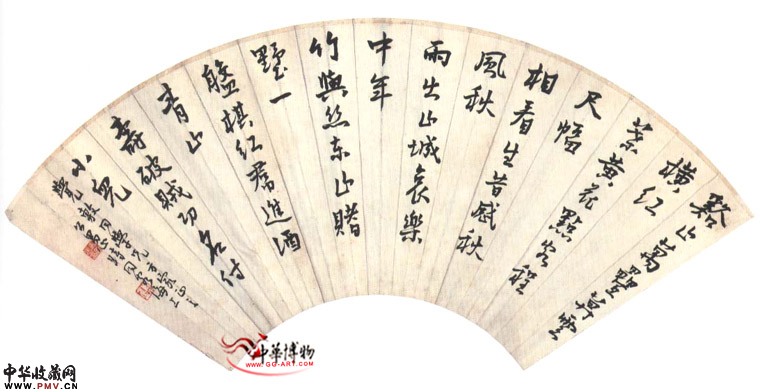 谿山萬疊莽雲
橫紅
葉黃花點客程
尺幅
相看生昔感秋
風秋
雨出山城哀樂
中年
竹與絲東山賭
墅一
盤棋紅裙進酒
青山
壽破賊功名付
小兒
中華博物
WWW.GG-ART.COM
中华收藏网
WWW.PMV.CN